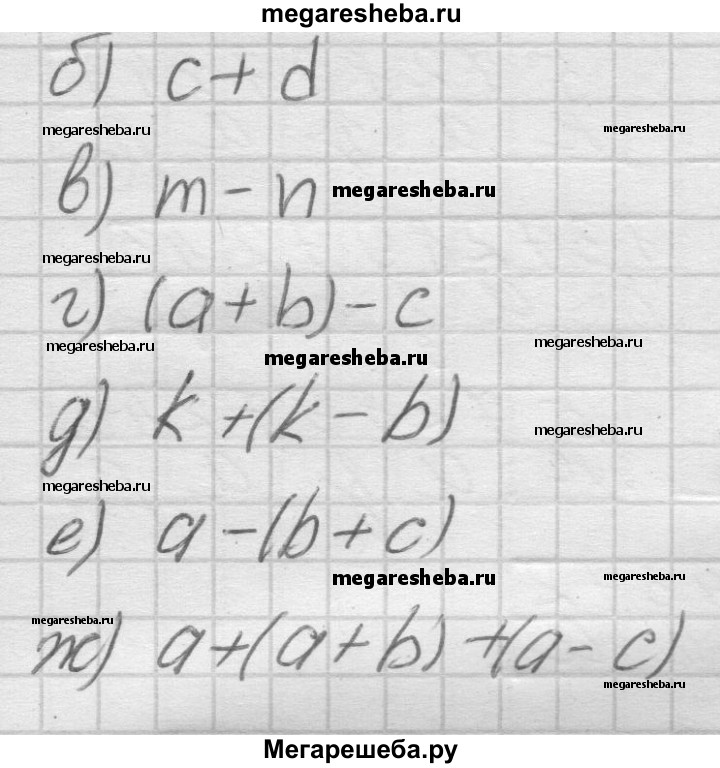 megaresheba.ru
б) c + d
megaresheba.ru megaresheba.ru
в) m - n megaresheba.ru
megaresheba.ru
г) (a + b) - c
megaresheba.ru megaresheba.ru megaresheba.ru
д) k + (k - b)
megaresheba.ru
megaresheba.ru
е) a - (b + c)
megaresheba.ru megaresheba.ru
megaresheba.ru
ж) a + (a + b) + (a - c)
megaresheba.ru
Мегарешеба.ру